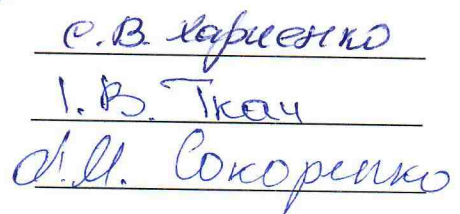 С.В. Харченко
І.В. Ткач
Л.М. Сокоренко